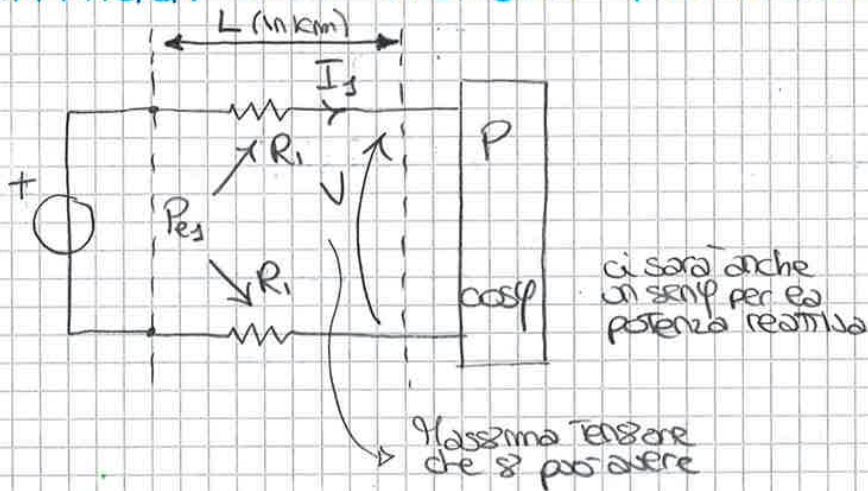 L (in km)
I1
+
R1
P
V
Pe1
R1
cosφ
ci sarà anche
un senφ per la
potenza reattiva
Massima tensione
che si può avere